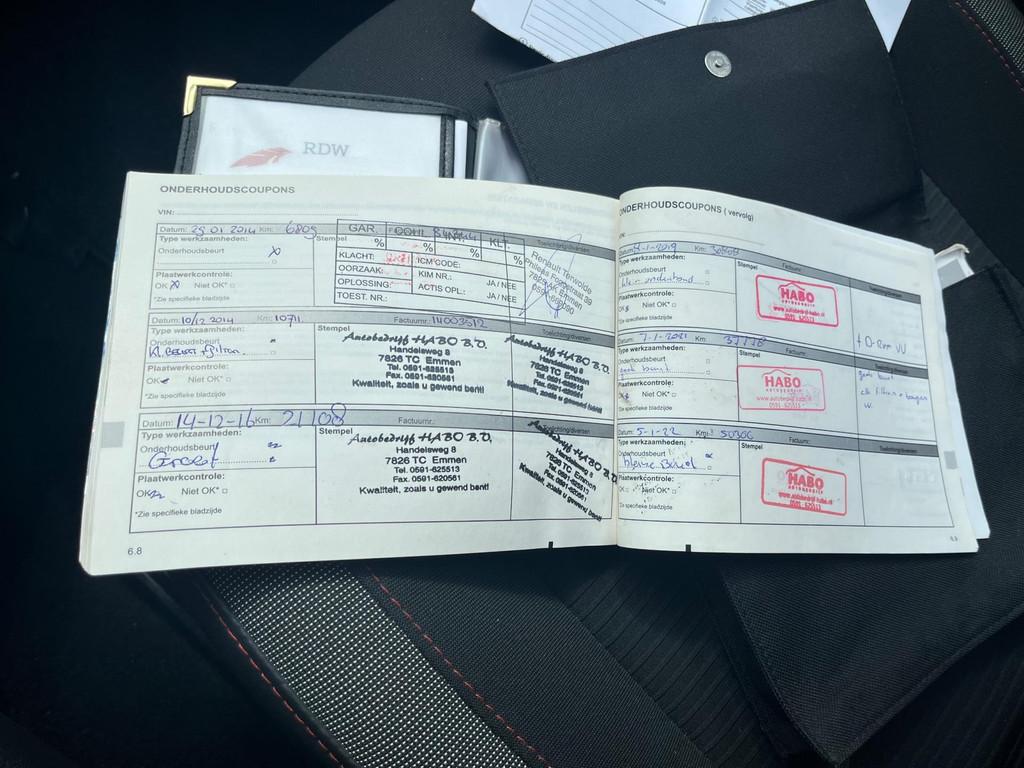 RDW
ONDERHOUDSCOUPONS
VIN:
Datum: 29 01 2014 Km: 6809
Type werkzaamheden:
Stempel
Onderhoudsbeurt
Plaatwerkcontrole:
OK Niet OK*
*Zie specifieke bladzijde
GAR. KLT.
% % % %
KLACHT: ICM CODE:
OORZAAK: KIM NR.: JA / NEE
OPLOSSING: ACTIS OPL.: JA / NEE
TOEST. NR.:
Toelichting/diversen
Renault Tenwolde
7826 AK Emmen
Datum: 10/12 2014 Km: 10711 Factuurnr.: 14003512
Type werkzaamheden:
Stempel
Toelichting/diversen
Onderhoudsbeurt
Kl. Beurt + filters.
Plaatwerkcontrole:
OK Niet OK*
*Zie specifieke bladzijde
Autobedrijf HABO B.V.
Handelsweg 8
7826 TC Emmen
Tel. 0591-625513
Fax. 0591-620561
Kwaliteit, zoals u gewend bent!
Autobedrijf HABO B.V.
Handelsweg 8
7826 TC Emmen
Tel. 0591-625513
Fax. 0591-620561
Kwaliteit, zoals u gewend bent!
Datum: 14-12-16 Km: 21108 Factuurnr.:
Type werkzaamheden:
Stempel
Toelichting/diversen
Onderhoudsbeurt
Groot
Plaatwerkcontrole:
OK Niet OK*
*Zie specifieke bladzijde
Autobedrijf HABO B.V.
Handelsweg 8
7826 TC Emmen
Tel. 0591-625513
Fax. 0591-620561
Kwaliteit, zoals u gewend bent!
Autobedrijf HABO B.V.
Handelsweg 8
7826 TC Emmen
Tel. 0591-625513
Fax. 0591-620561
Kwaliteit, zoals u gewend bent!
6.8
ONDERHOUDSCOUPONS ( vervolg)
VIN:
Datum: -1-2019 Km: Factuurnr.:
Type werkzaamheden:
Stempel
Toelichting/diversen
Onderhoudsbeurt
Plaatwerkcontrole:
OK Niet OK*
*Zie specifieke bladzijde
HABO
AUTOSERVICE
www.autobedrijf-habo.nl
0591 625513
Datum: 7-1-2021 Km: Factuurnr.:
Type werkzaamheden:
Stempel
Toelichting/diversen
Onderhoudsbeurt
Plaatwerkcontrole:
OK Niet OK*
*Zie specifieke bladzijde
HABO
AUTOSERVICE
www.autobedrijf-habo.nl
0591 625513
Datum: 5-1-22 Km: 50306 Factuurnr.:
Type werkzaamheden:
Stempel
Toelichting/diversen
Onderhoudsbeurt
kleine Beurt
Plaatwerkcontrole:
OK Niet OK*
*Zie specifieke bladzijde
HABO
AUTOSERVICE
www.autobedrijf-habo.nl
0591 625513
6.9